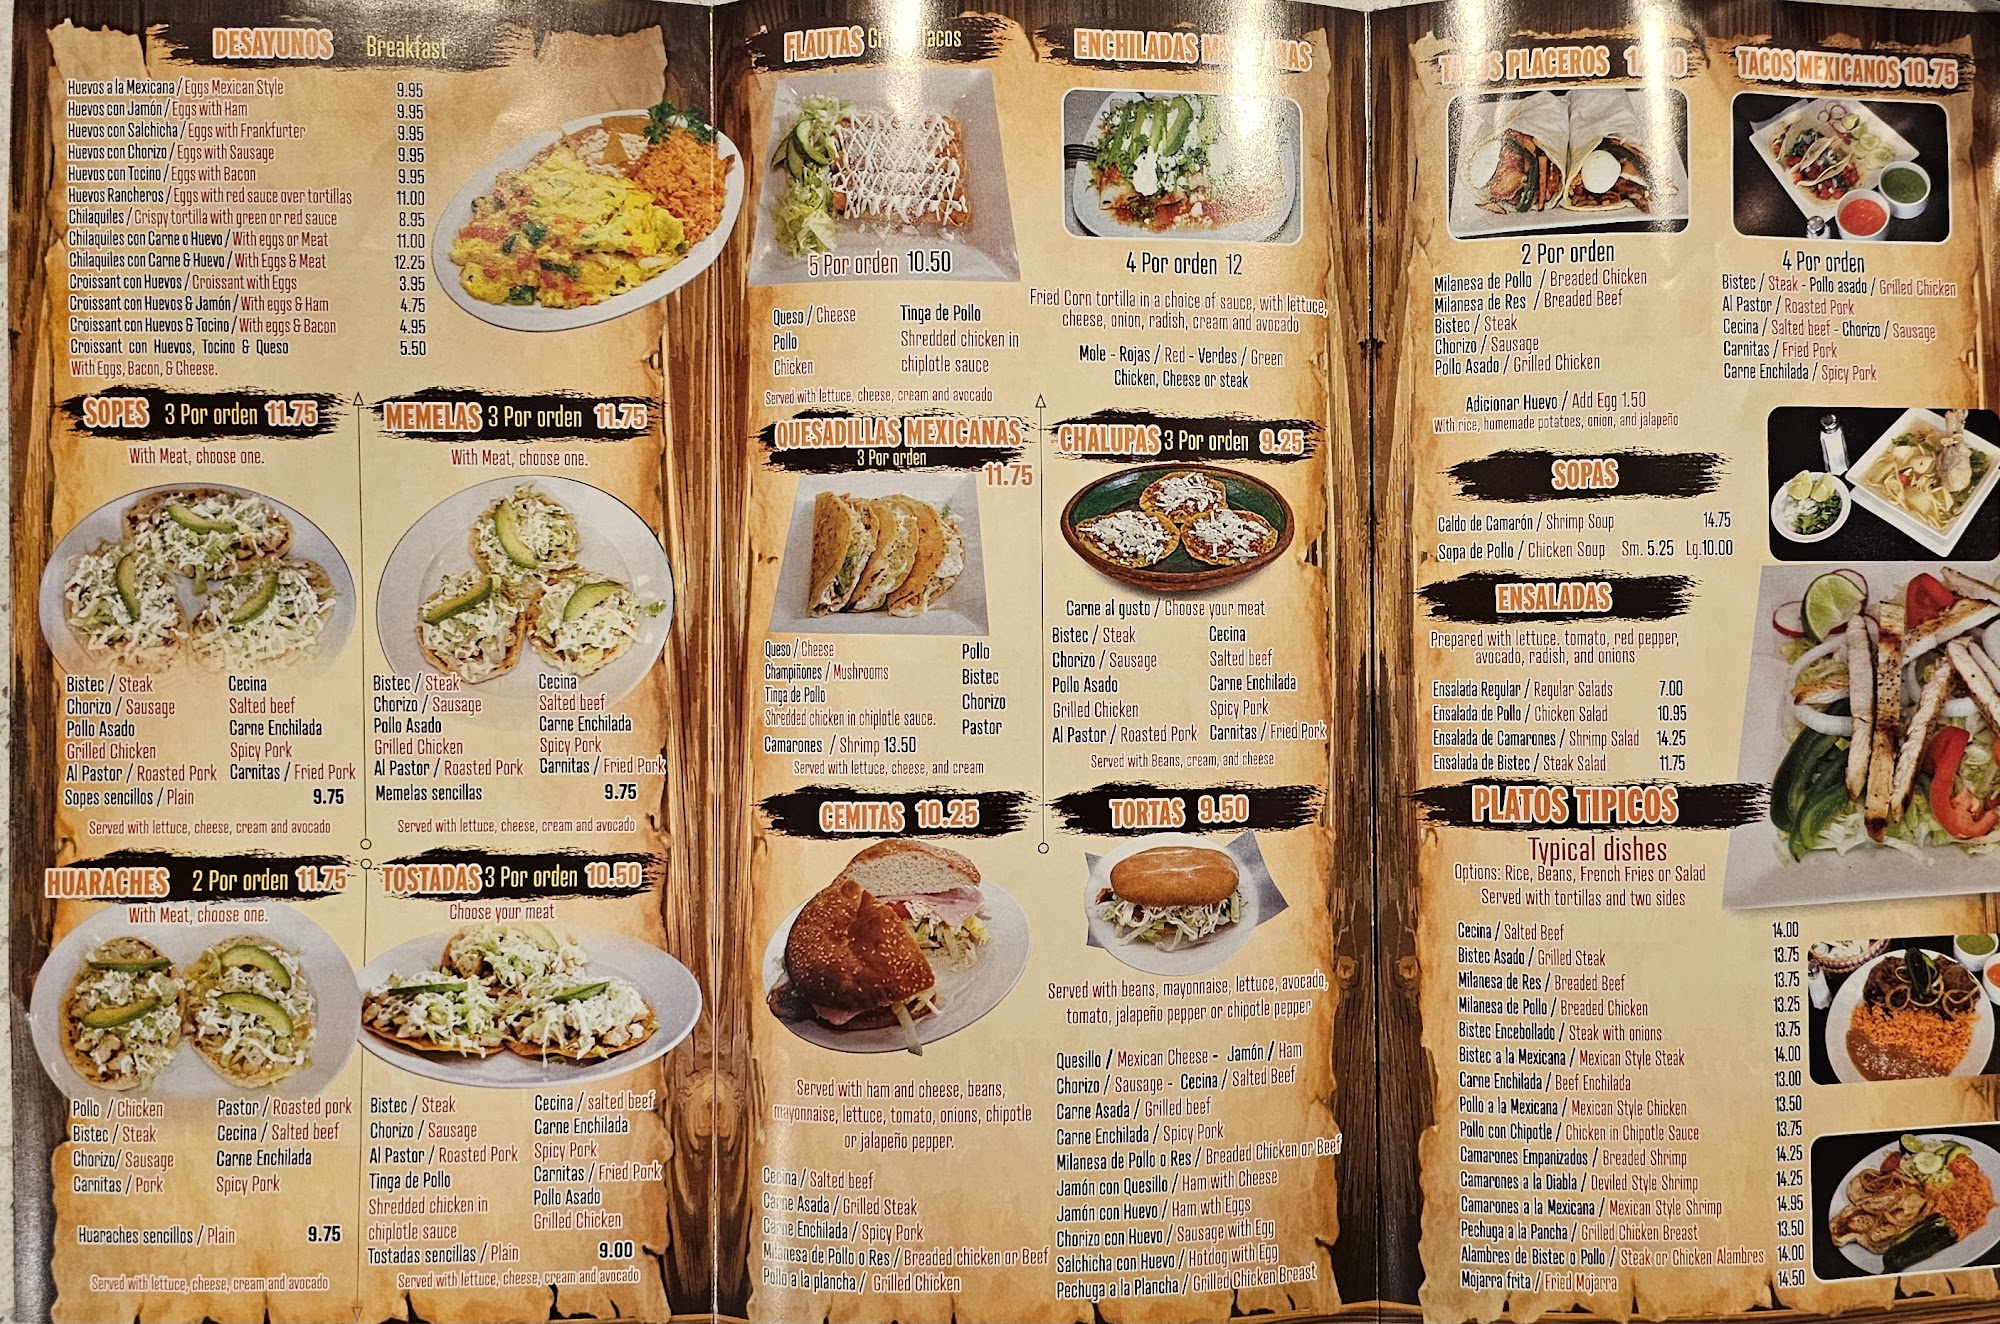 DESAYUNOS Breakfast
Huevos a la Mexicana / Eggs Mexican Style 9.95
Huevos con Jamón / Eggs with Ham 9.95
Huevos con Salchicha / Eggs with Frankfurter 9.95
Huevos con Chorizo / Eggs with Sausage 9.95
Huevos con Tocino / Eggs with Bacon 9.95
Huevos Rancheros / Eggs with red sauce over tortillas 11.00
Chilaquiles / Crispy tortilla with green or red sauce 8.95
Chilaquiles con Carne o Huevo / With eggs or Meat 11.00
Chilaquiles con Carne & Huevo / With Eggs & Meat 12.25
Croissant con Huevos / Croissant with Eggs 3.95
Croissant con Huevos & Jamón / With eggs & Ham 4.75
Croissant con Huevos & Tocino / With eggs & Bacon 4.95
Croissant con Huevos, Tocino & Queso 5.50
With Eggs, Bacon, & Cheese.
SOPES 3 Por orden 11.75
With Meat, choose one.
Bistec / Steak
Chorizo / Sausage
Pollo Asado
Grilled Chicken
Al Pastor / Roasted Pork
Cecina
Salted beef
Carne Enchilada
Spicy Pork
Carnitas / Fried Pork
Sopes sencillos / Plain 9.75
Served with lettuce, cheese, cream and avocado
MEMELAS 3 Por orden 11.75
With Meat, choose one.
Bistec / Steak
Chorizo / Sausage
Pollo Asado
Grilled Chicken
Al Pastor / Roasted Pork
Cecina
Salted beef
Carne Enchilada
Spicy Pork
Carnitas / Fried Pork
Memelas sencillas 9.75
Served with lettuce, cheese, cream and avocado
HUARACHES 2 Por orden 11.75
With Meat, choose one.
Pollo / Chicken
Bistec / Steak
Chorizo/ Sausage
Carnitas / Pork
Pastor / Roasted pork
Cecina / Salted beef
Carne Enchilada
Spicy Pork
Huaraches sencillos / Plain 9.75
Served with lettuce, cheese, cream and avocado
TOSTADAS 3 Por orden 10.50
Choose your meat
Bistec / Steak
Chorizo / Sausage
Al Pastor / Roasted Pork
Tinga de Pollo
Shredded chicken in
chiplotle sauce
Cecina / salted beef
Carne Enchilada
Spicy Pork
Carnitas / Fried Pork
Pollo Asado
Grilled Chicken
Tostadas sencillas / Plain 9.00
Served with lettuce, cheese, cream and avocado
FLAUTAS
5 Por orden 10.50
Queso / Cheese
Pollo
Chicken
Tinga de Pollo
Shredded chicken in
chiplotle sauce
Served with lettuce, cheese, cream and avocado
ENCHILADAS MEXICANAS
4 Por orden 12
Fried Corn tortilla in a choice of sauce, with lettuce,
cheese, onion, radish, cream and avocado
Mole - Rojas / Red - Verdes / Green
Chicken, Cheese or steak
QUESADILLAS MEXICANAS
3 Por orden
11.75
Queso / Cheese
Champiñones / Mushrooms
Tinga de Pollo
Shredded chicken in chiplotle sauce.
Camarones / Shrimp 13.50
Pollo
Bistec
Chorizo
Pastor
Served with lettuce, cheese, and cream
CHALUPAS 3 Por orden 9.25
Carne al gusto / Choose your meat
Bistec / Steak
Chorizo / Sausage
Pollo Asado
Grilled Chicken
Al Pastor / Roasted Pork
Cecina
Salted beef
Carne Enchilada
Spicy Pork
Carnitas / Fried Pork
Served with Beans, cream, and cheese
CEMITAS 10.25
Served with ham and cheese, beans,
mayonnaise, lettuce, tomato, onions, chipotle
or jalapeño pepper.
Cecina / Salted beef
Carne Asada / Grilled Steak
Carne Enchilada / Spicy Pork
Milanesa de Pollo o Res / Breaded chicken or Beef
Pollo a la plancha / Grilled Chicken
TORTAS 9.50
Served with beans, mayonnaise, lettuce, avocado,
tomato, jalapeño pepper or chipotle pepper
Quesillo / Mexican Cheese - Jamón / Ham
Chorizo / Sausage - Cecina / Salted Beef
Carne Asada / Grilled beef
Carne Enchilada / Spicy Pork
Milanesa de Pollo o Res / Breaded Chicken or Beef
Jamón con Quesillo / Ham with Cheese
Jamón con Huevo / Ham wth Eggs
Chorizo con Huevo / Sausage with Egg
Salchicha con Huevo / Hotdog with Egg
Pechuga a la Plancha / Grilled Chicken Breast
TACOS PLACEROS
2 Por orden
Milanesa de Pollo / Breaded Chicken
Milanesa de Res / Breaded Beef
Bistec / Steak
Chorizo / Sausage
Pollo Asado / Grilled Chicken
Adicionar Huevo / Add Egg 1.50
With rice, homemade potatoes, onion, and jalapeño
TACOS MEXICANOS 10.75
4 Por orden
Bistec / Steak - Pollo asado / Grilled Chicken
Al Pastor / Roasted Pork
Cecina / Salted beef - Chorizo / Sausage
Carnitas / Fried Pork
Carne Enchilada / Spicy Pork
SOPAS
Caldo de Camarón / Shrimp Soup 14.75
Sopa de Pollo / Chicken Soup Sm. 5.25 Lg.10.00
ENSALADAS
Prepared with lettuce. tomato, red pepper,
avocado, radish, and onions
Ensalada Regular / Regular Salads 7.00
Ensalada de Pollo / Chicken Salad 10.95
Ensalada de Camarones / Shrimp Salad 14.25
Ensalada de Bistec / Steak Salad 11.75
PLATOS TIPICOS
Typical dishes
Options: Rice, Beans, French Fries or Salad
Served with tortillas and two sides
Cecina / Salted Beef 14.00
Bistec Asado / Grilled Steak 13.75
Milanesa de Res / Breaded Beef 13.75
Milanesa de Pollo / Breaded Chicken 13.25
Bistec Encebollado / Steak with onions 13.75
Bistec a la Mexicana / Mexican Style Steak 14.00
Carne Enchilada / Beef Enchilada 13.00
Pollo a la Mexicana / Mexican Style Chicken 13.50
Pollo con Chipotle / Chicken in Chipotle Sauce 13.75
Camarones Empanizados / Breaded Shrimp 14.25
Camarones a la Diabla / Deviled Style Shrimp 14.25
Camarones a la Mexicana / Mexican Style Shrimp 14.95
Pechuga a la Pancha / Grilled Chicken Breast 13.50
Alambres de Bistec o Pollo / Steak or Chicken Alambres 14.00
Mojarra frita / Fried Mojarra 14.50